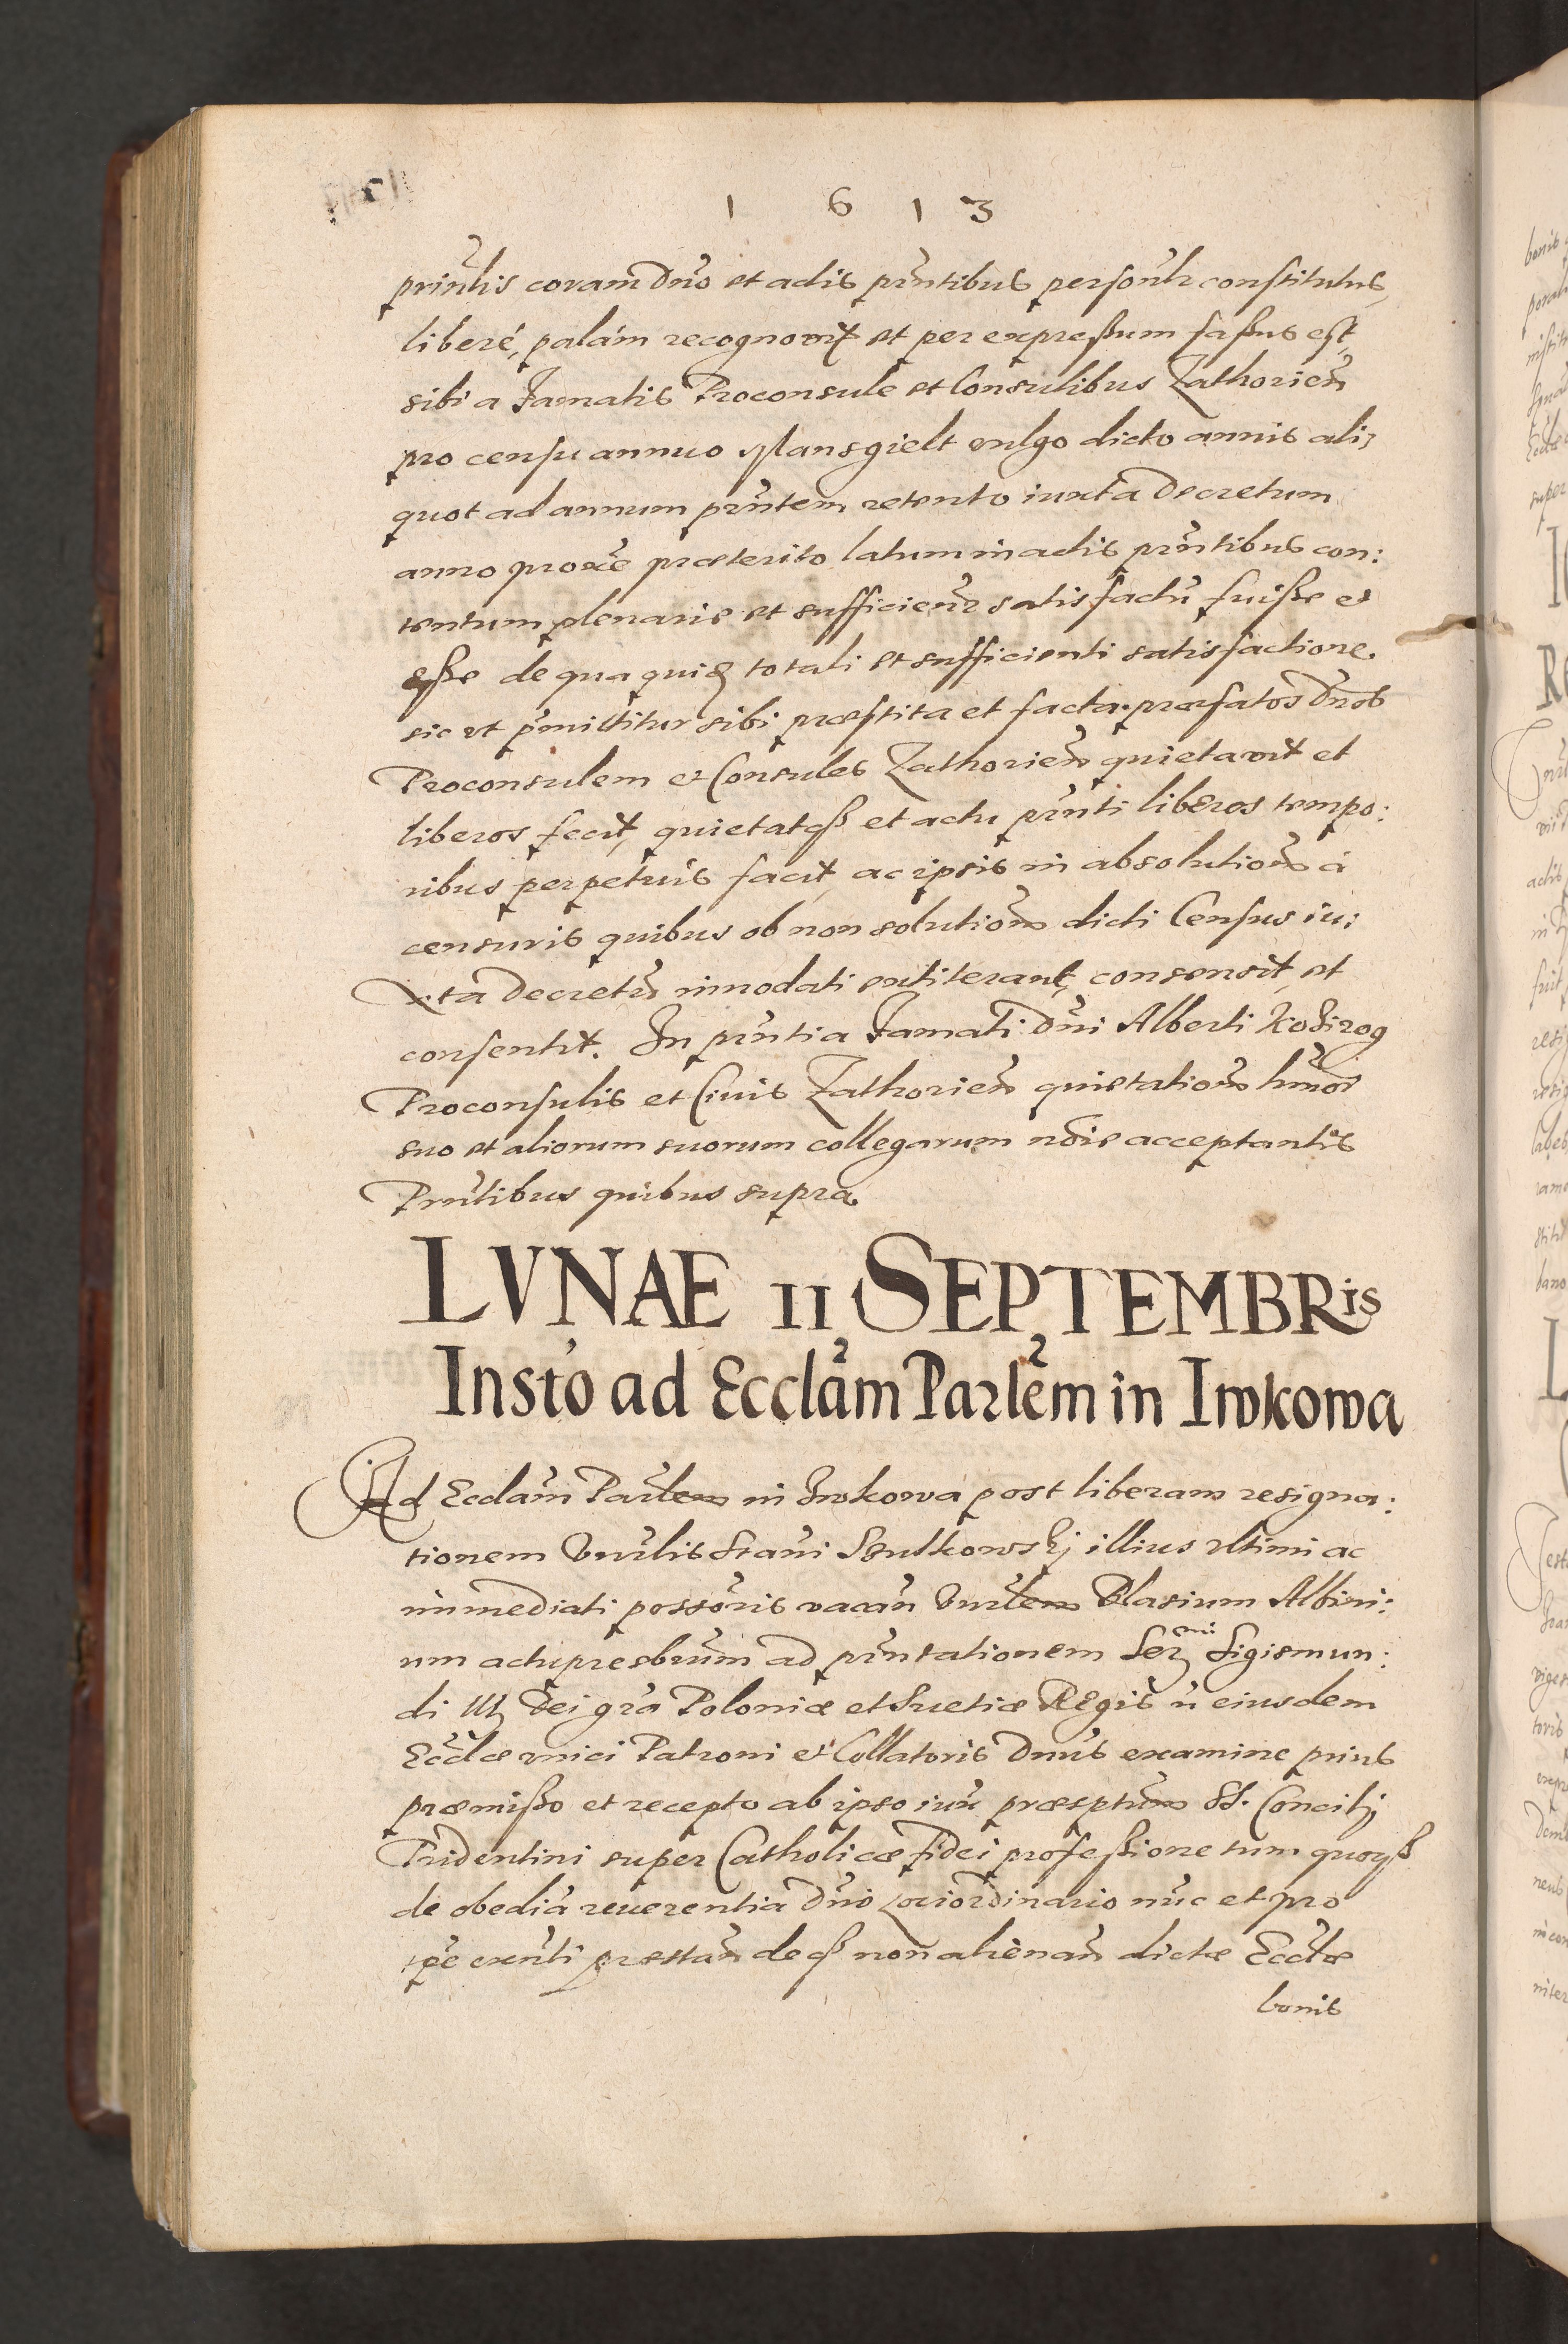 1 6 1 3
prinlis coram Dno et actis pntibus personlr constitutus,
liberé, palám recognovit et per expreßum faßus est,
sibi a Famatis Proconsule et Consulibus Zathorien
pro censu annuo Plansgielt vulgo dicto annis ali,
quot ad annum pntem retento iuxta Decretum
anno proxe præterito latum in actis pntibus con:
tentum plenarie et sufficienr satisfactu fuiße et
eße de qua quiđ totali et sufficienti satisfactione
sic vt pmittitur sibi præstita et facta præfatos Dnos
Proconsulem et Consules Zathorien quietavit et
liberos fecit, quietatqß et actu pnti liberos tempo:
ribus perpetuis facit, ac ipsis in absolutionem á
censuris quibus ob non solutionem dicti Census iu:
xta Decretu innodati extiterant, consensit, et
consentit. In pntia Famati Dni Alberti Kozirog
Proconsulis et Civis Zathorien quietationem hmoi
suo et aliorum suorum collegarum noie acceptantis
Pntibus quibus supra
LVNAE 11 SEPTEMBRis
Insto ad Ecclam Parlem in Iwkowa
Ad Ecclam Parlem in Iwkowa post liberam resigna:
tionem Vnrlis Stani Szulkowskj illius vltimi ac
immediati possoris vacan Vnrlem Blasium Albini:
um actu presbrum ad pntationem Serᵐⁱ Sigismun:
di III Dei gra Poloniæ et Suetiæ Regis ù eiusdem
Ecclæ vnici Patroni et Collatoris Dnus examine prius
præmißo et recepto ab ipso iuxᵃ præsptum SS. Concilij
Tridentini super Catholicæ Fidei profeßione tum quoqß
de obedia reuerentia Dno Loci ordinario nuc et pro
tpe exnti prestan deqß non alienan dictæ Ecclæ
bonis